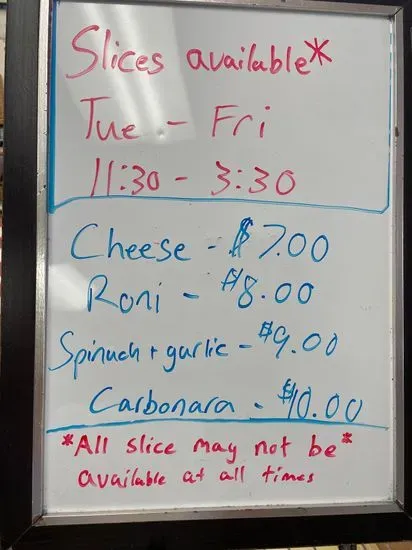 Slices available*
Tue - Fri
11:30 - 3:30
Cheese - $7.00
Roni - $8.00
Spinach + garlic - $9.00
Carbonara - $10.00
*All slice may not be*
available at all times